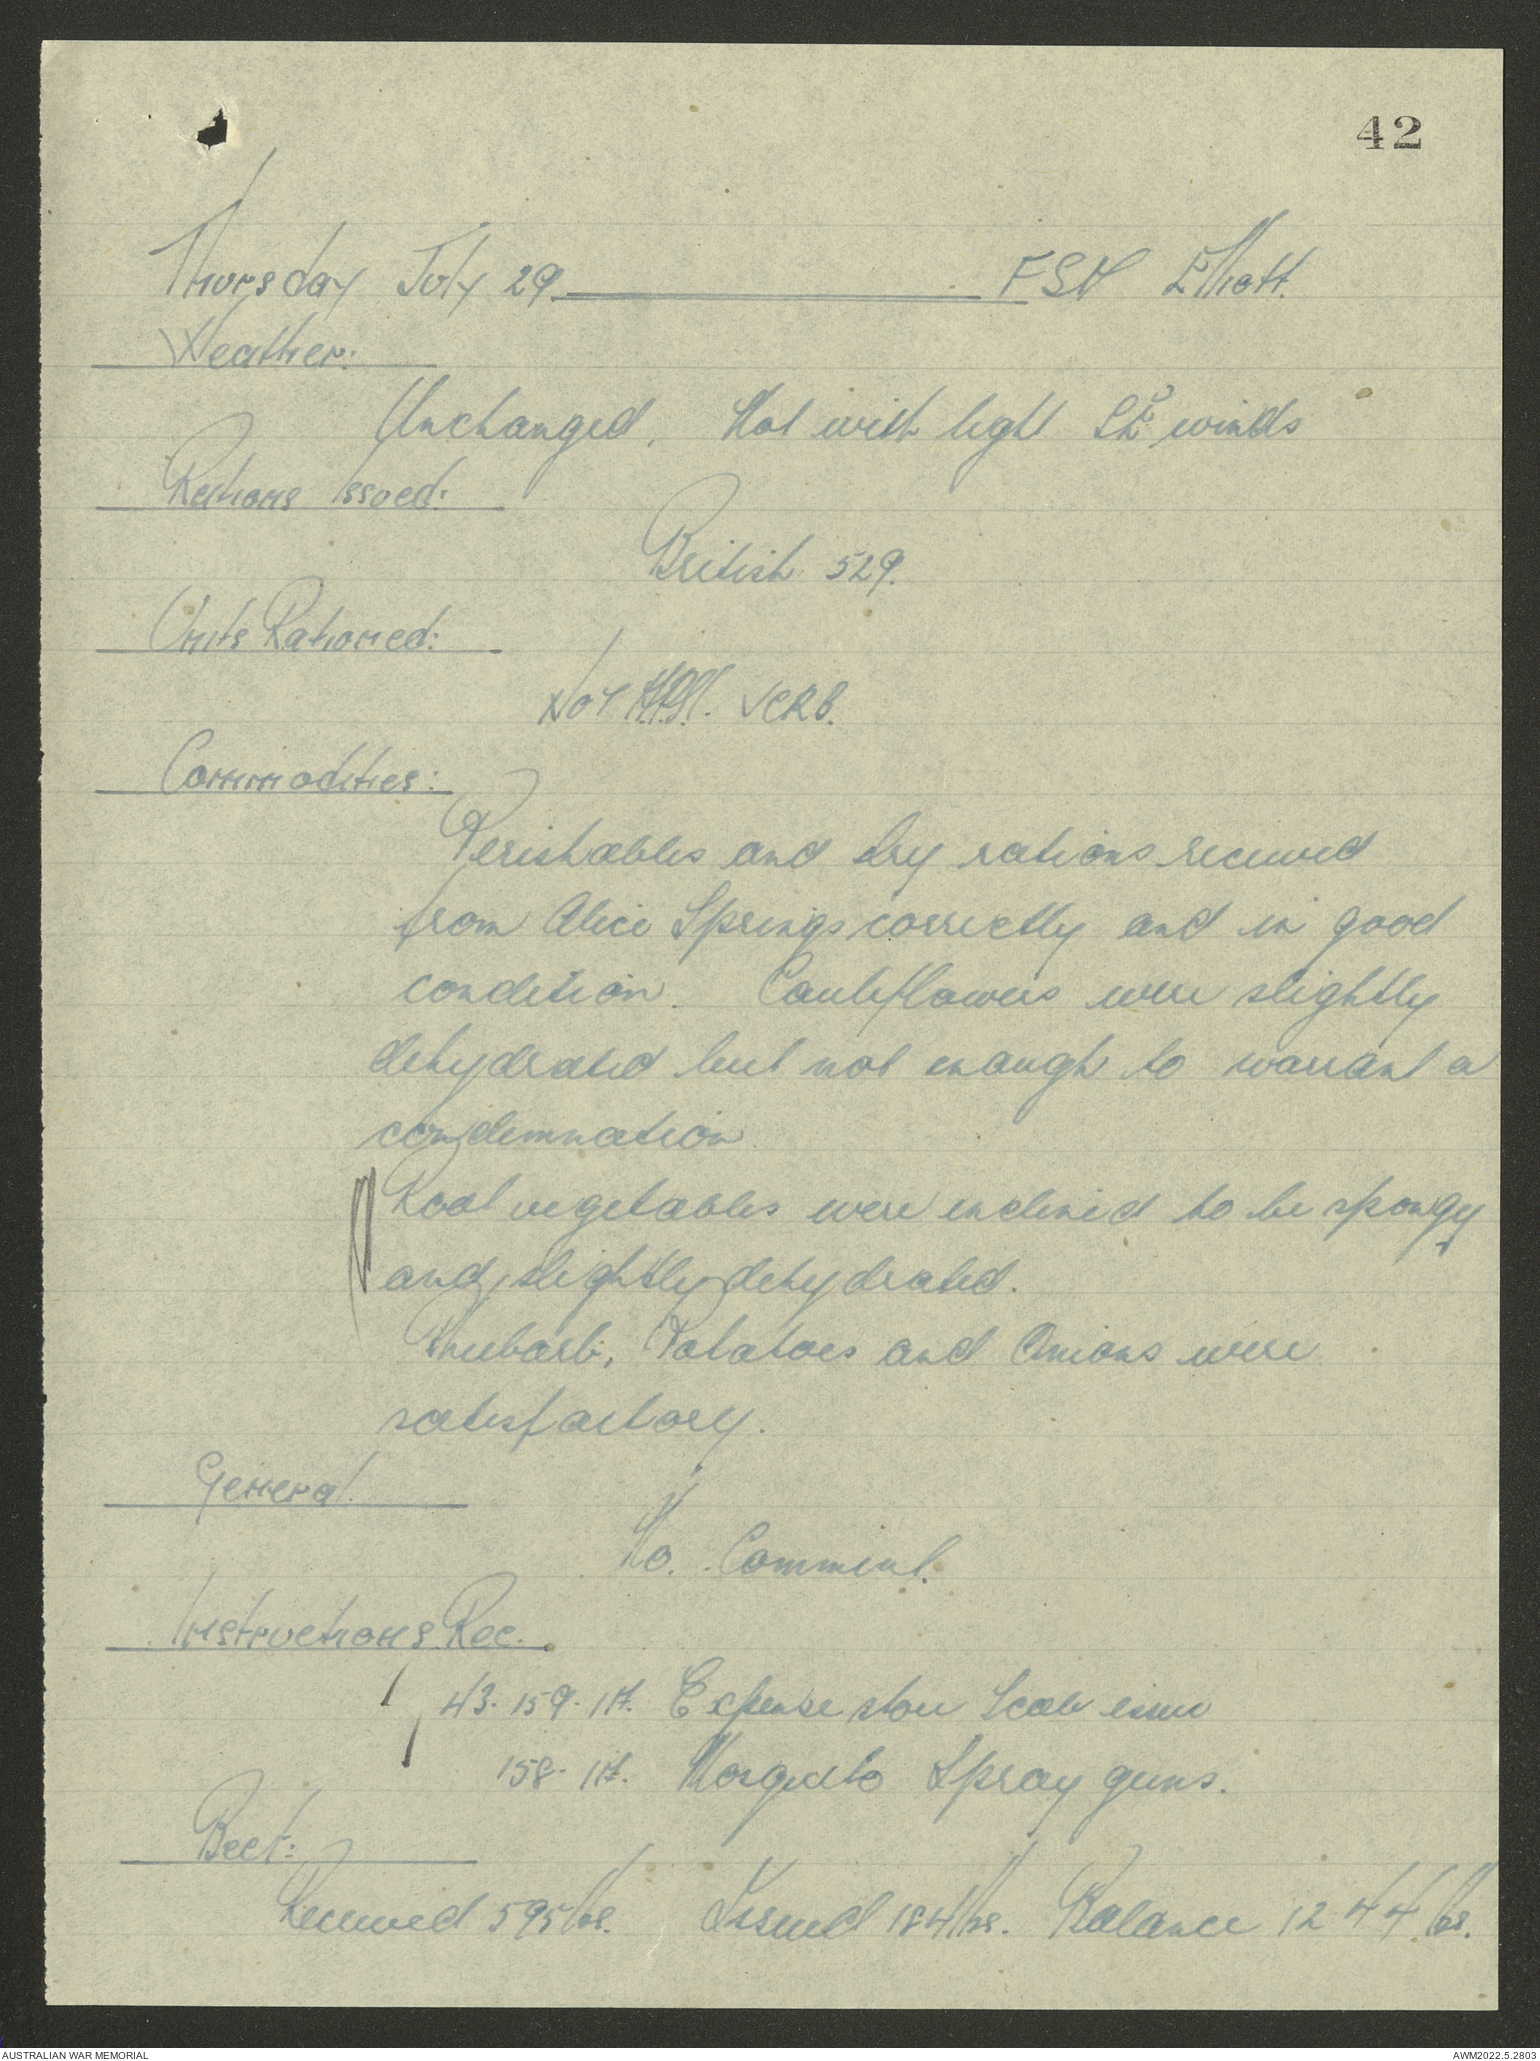 42
Thursday July 29 FSD Elliott.
Weather:
Unchanged. Hot with light SE winds
Rations Issued:
British 529.
Units Rationed:
No 1
Commodities:
Perishables and dry rations received
from Alice Springs correctly and in good
condition. Cauliflowers were slightly
dehydrated but not enough to warrant a
condemnation.
Root vegetables were inclined to be spongy
and slightly dehydrated.
Rhubarb, Potatoes and Onions were
satisfactory.
General.
No. Comment.
Instructions Rec.
43. 159. Expense store Scale issue
158. Mosquito Spray guns.
Beef:
Received 595 lbs. Issued 184 lbs. Balance 1244 lbs.
AUSTRALIAN WAR MEMORIAL AWM2022.5.2803